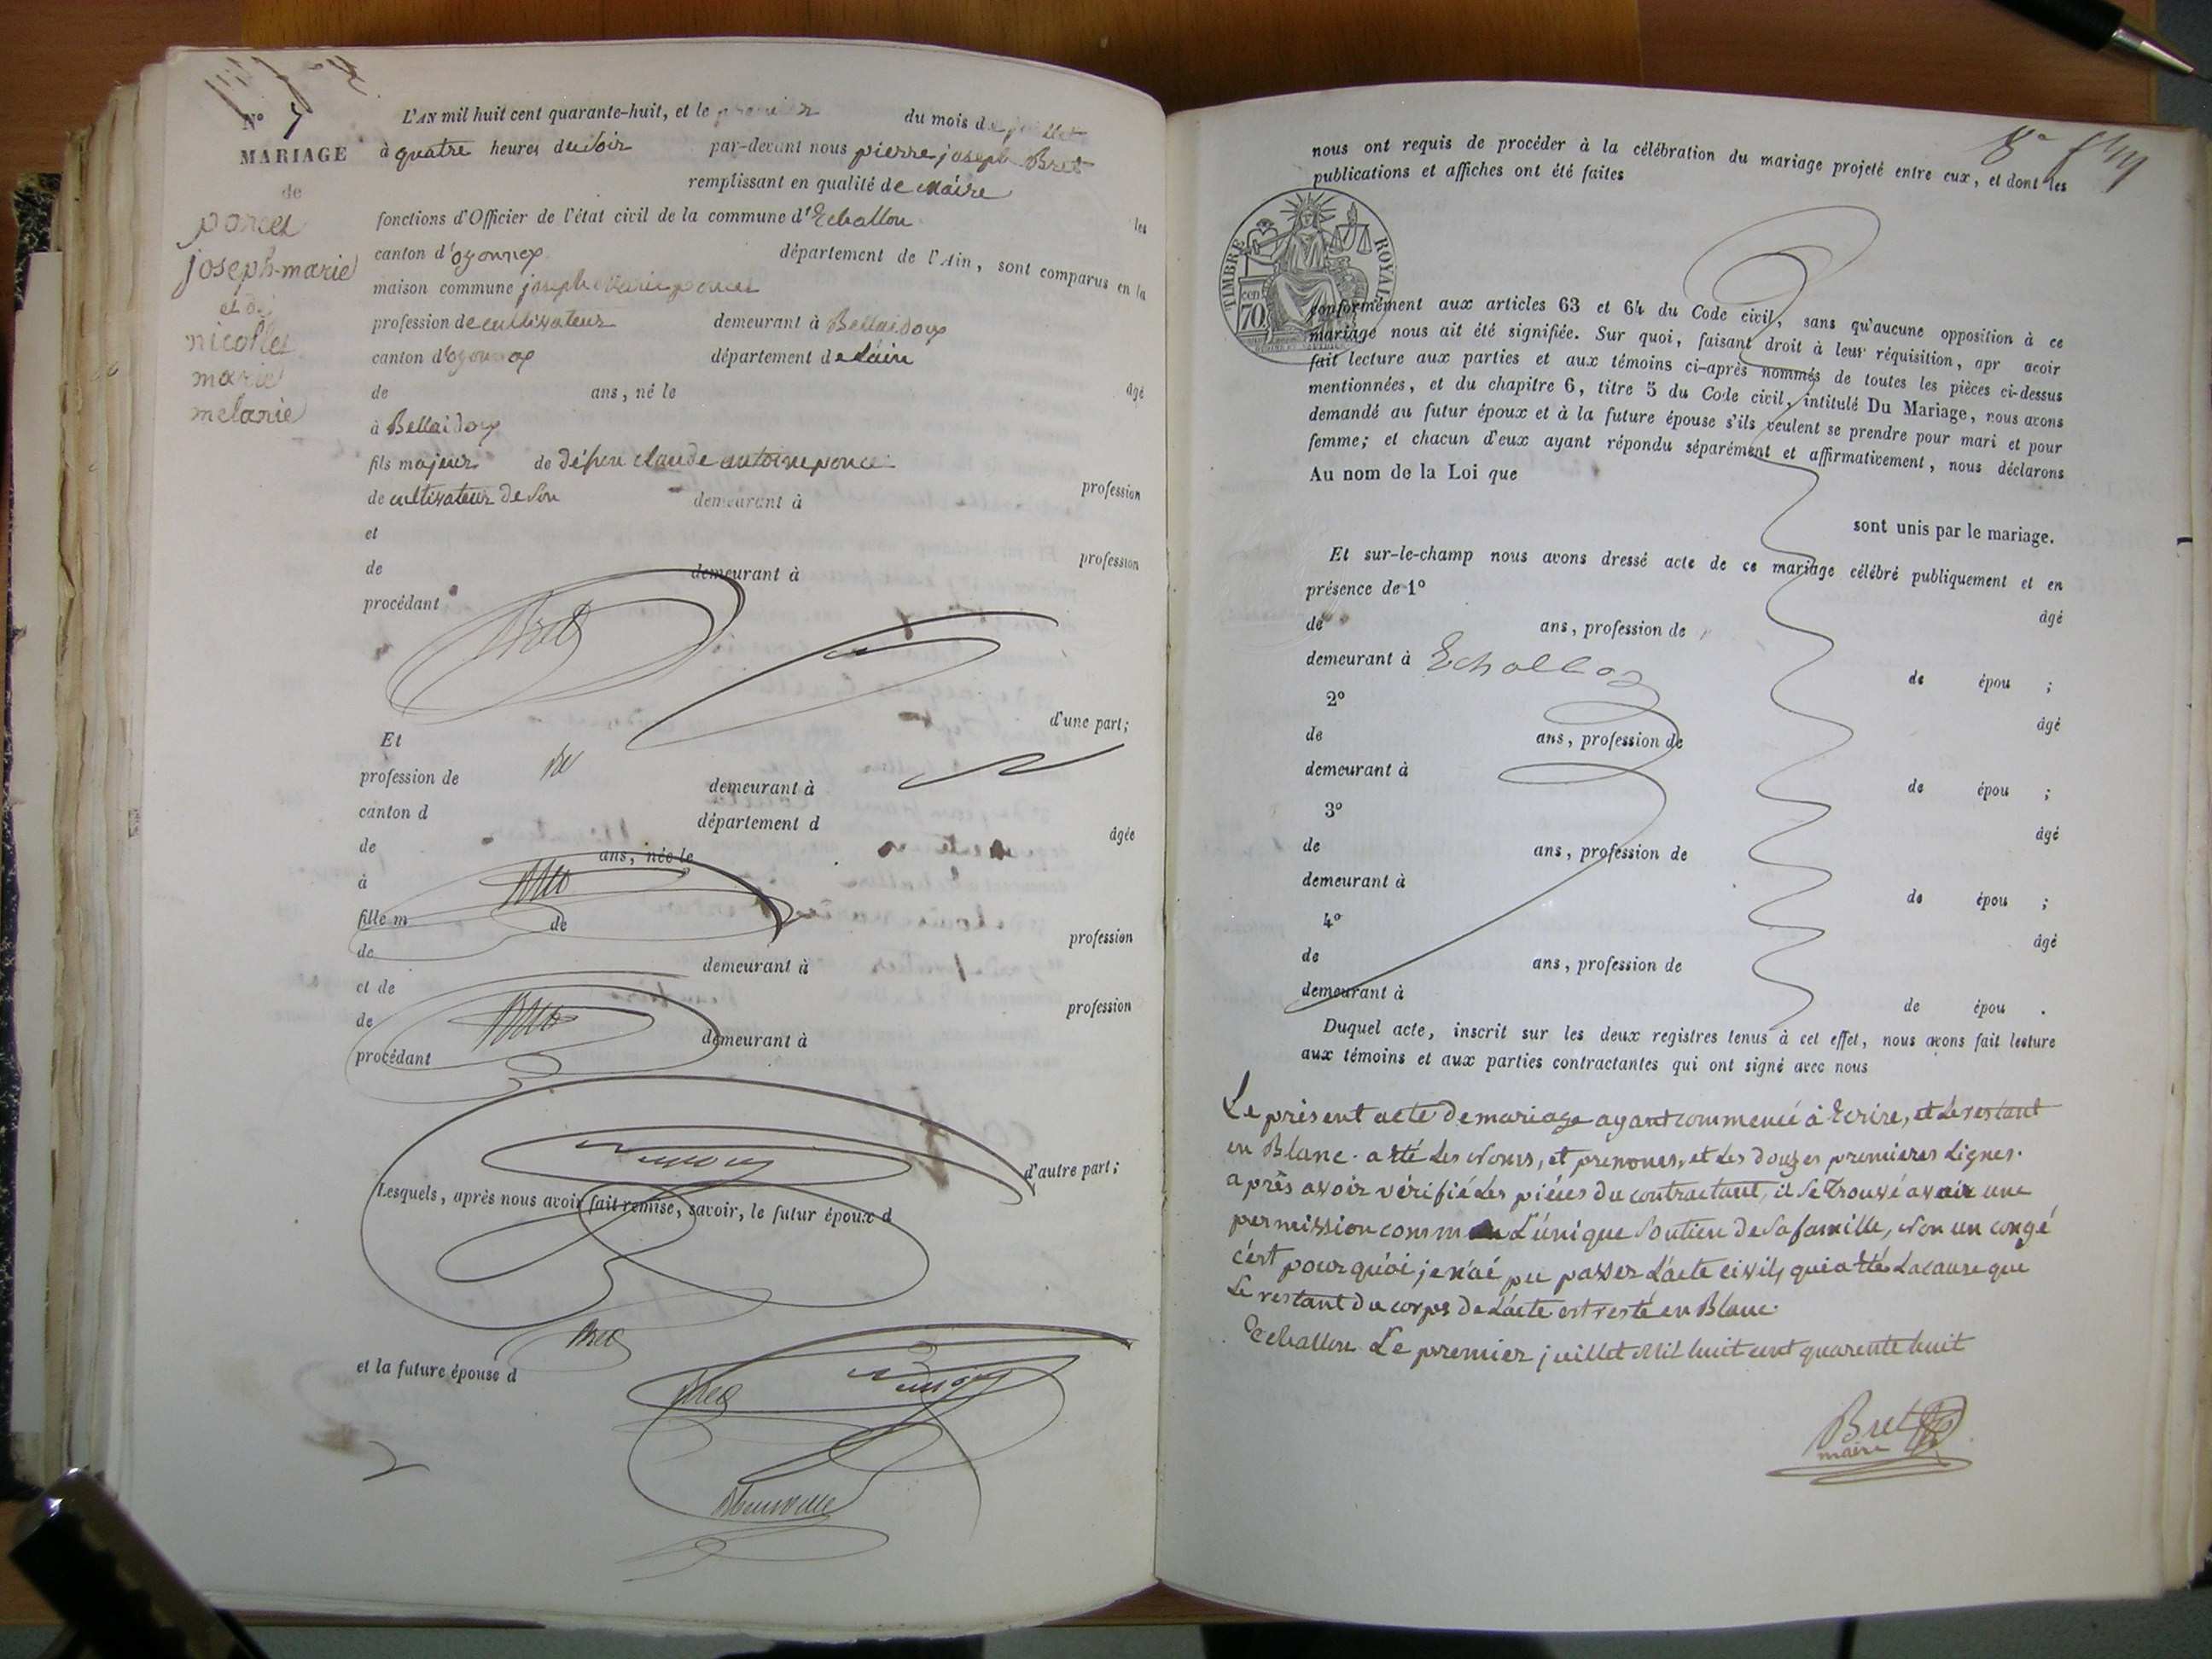 N° 7
MARIAGE
de
poncet
joseph-marie
et de
nicollet
marie
melanie
L'AN mil huit cent quarante-huit, et le premier du mois de juillet
à quatre heures du soir par-devant nous pierre joseph Bret
remplissant en qualité de Maire les
fonctions d'Officier de l'état civil de la commune d'Echallon
canton d'oyonnax département de l'Ain, sont comparus en la
maison commune joseph Marie poncet
profession de cultivateur demeurant à Bellaidoux
canton d'oyonnax département de Lain âgé
de ans, né le
à Bellaidoux
fils majeur de défun claude antoine ponce profession
de cultivateur de son demeurant à
et profession
de demeurant à
procédant
Bret
d'une part;
Et
profession de demeurant à
canton d département d âgée
de ans, née le
à
fille m de profession
de demeurant à
et de profession
de demeurant à
procédant
d'autre part;
Lesquels, après nous avoir fait remise, savoir, le futur époux d
Bret
et la future épouse d
Bret
nous ont requis de procéder à la célébration du mariage projeté entre eux, et dont les
publications et affiches ont été faites
TIMBRE ROYAL
cent 70
conformément aux articles 63 et 64 du Code civil, sans qu'aucune opposition à ce
mariage nous ait été signifiée. Sur quoi, faisant droit à leur réquisition, apr avoir
fait lecture aux parties et aux témoins ci-après nommés de toutes les pièces ci-dessus
mentionnées, et du chapitre 6, titre 5 du Code civil, intitulé Du Mariage, nous avons
demandé au futur époux et à la future épouse s'ils veulent se prendre pour mari et pour
femme; et chacun d'eux ayant répondu séparément et affirmativement, nous déclarons
Au nom de la Loi que
sont unis par le mariage.
Et sur-le-champ nous avons dressé acte de ce mariage célébré publiquement et en
présence de 1° âgé
de ans, profession de
demeurant à Echallon de épou ;
2° âgé
de ans, profession de
demeurant à de épou ;
3° âgé
de ans, profession de
demeurant à de épou ;
4° âgé
de ans, profession de
demeurant à de épou .
Duquel acte, inscrit sur les deux registres tenus à cet effet, nous avons fait lecture
aux témoins et aux parties contractantes qui ont signé avec nous
Le présent acte de mariage ayant commencé à Ecrire, et le restant
en Blanc. a été Les Noms, et prenoms, et Les douzes premieres Lignes.
après avoir vérifié Les piéces du contractant, il se trouvé avoir une
permission comm L'unique Soutien de sa famille, Non un congé
c'est pourquoi je n'ai pu passer L'acte civil, qui a été La cause que
Le restant du corps de L'acte est resté en Blanc.
Echallon Le premier juillet Mil huit cent quarente huit
Bret
maire